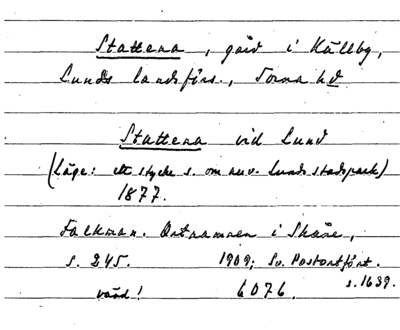 Stattena, gård i Källby,
Lunds landsförs., Torna hd
Stattena vid Lund
(Läge: ett stycke s. om nuv. Lunds stadspark)
1877.
Falkman. Ortnamnen i Skåne,
s. 245. 1909; Sv. Postortfört.
s. 1639.
värd! 6076.